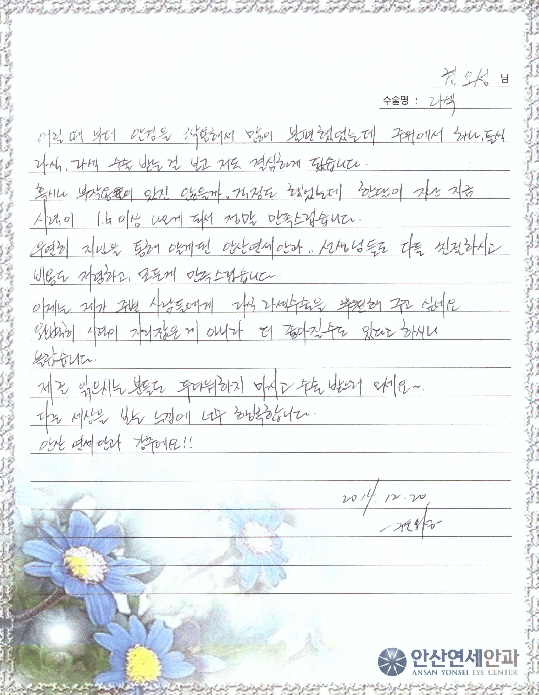 님
수술명 : 라섹
어릴 때 부터 안경을 착용해서 많이 불편했었는데 주위에서 하나, 둘씩
라식, 라섹 수술 받는걸 보고 저도 결심하게 됐습니다.
혹시나 부작용이 있진 않을까.. 걱정도 했었는데 한달이 지난 지금
시력이 1.6이상 나오게 되서 정말 만족스럽습니다.
우연히 지인을 통해 알게된 안산연세안과.. 선생님들도 다들 친절하시고
비용도 저렴하고, 모든게 만족스럽습니다
이제는 제가 주변 사람들에게 라식 라섹수술을 추천해 주고 싶네요
완벽히 시력이 자리잡은게 아니라 더 좋아질수도 있다고 하시니
놀랍습니다.
제 글 읽으시는 분들도 두려워하지 마시고 수술 받으러 오세요~
다른 세상을 보는 느낌에 너무 행복합니다.
안산 연세안과 강추에요!!
2011. 12. 20
안산연세안과
ANSAN YONSEI EYE CENTER